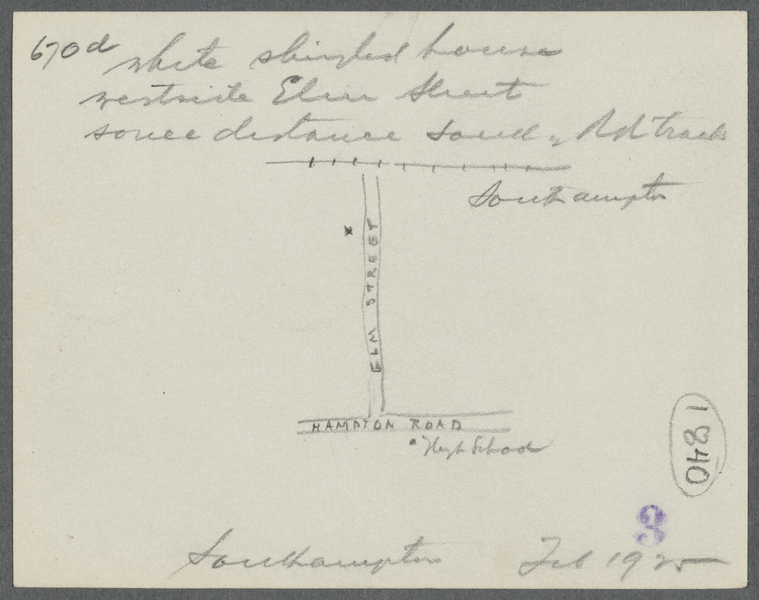 670d
white shingled house
westside Elm Street
some distance South of RR tracks
Southampton
ELM STREET
HAMPTON ROAD
High School
1840
3
Southampton Feb 1925